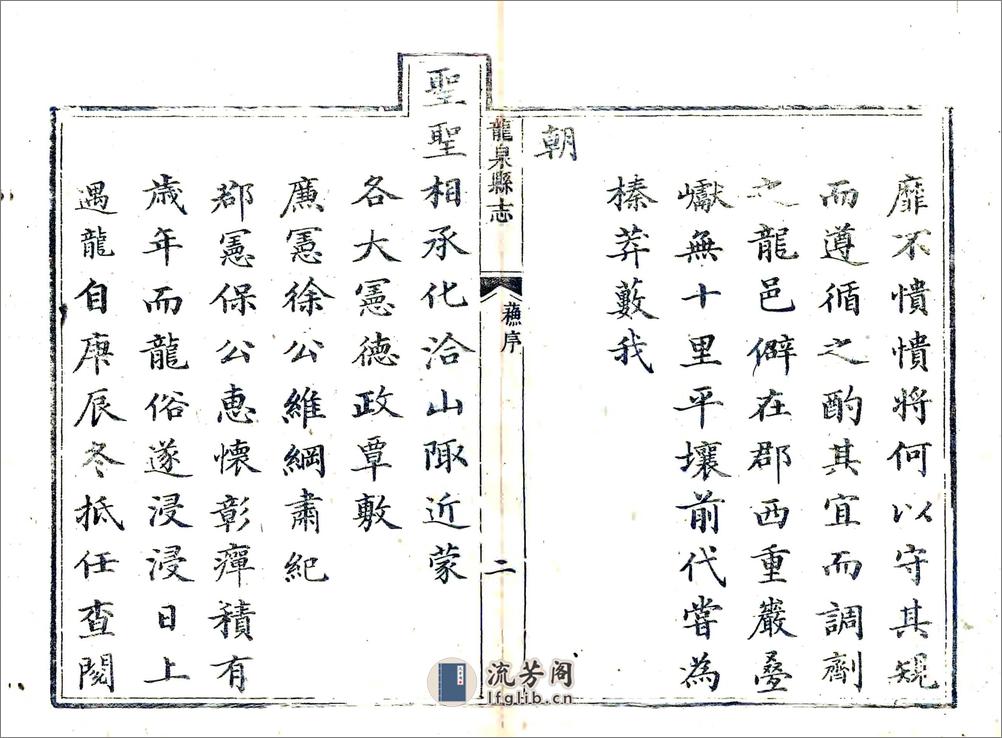 靡不憒憒將何以守其規
而遵循之酌其宜而調劑
之龍邑僻在郡西重巖疊
巘無十里平壤前代嘗為
榛莽藪我
朝
龍泉縣志
蘓序
二
聖聖相承化洽山陬近蒙
各大憲德政覃敷
廉憲徐公維綱肅紀
郡憲保公惠懷彰癉積有
歲年而龍俗遂浸浸日上
遇龍自庚辰冬抵任查閱
流芳阁
lfglib.cn